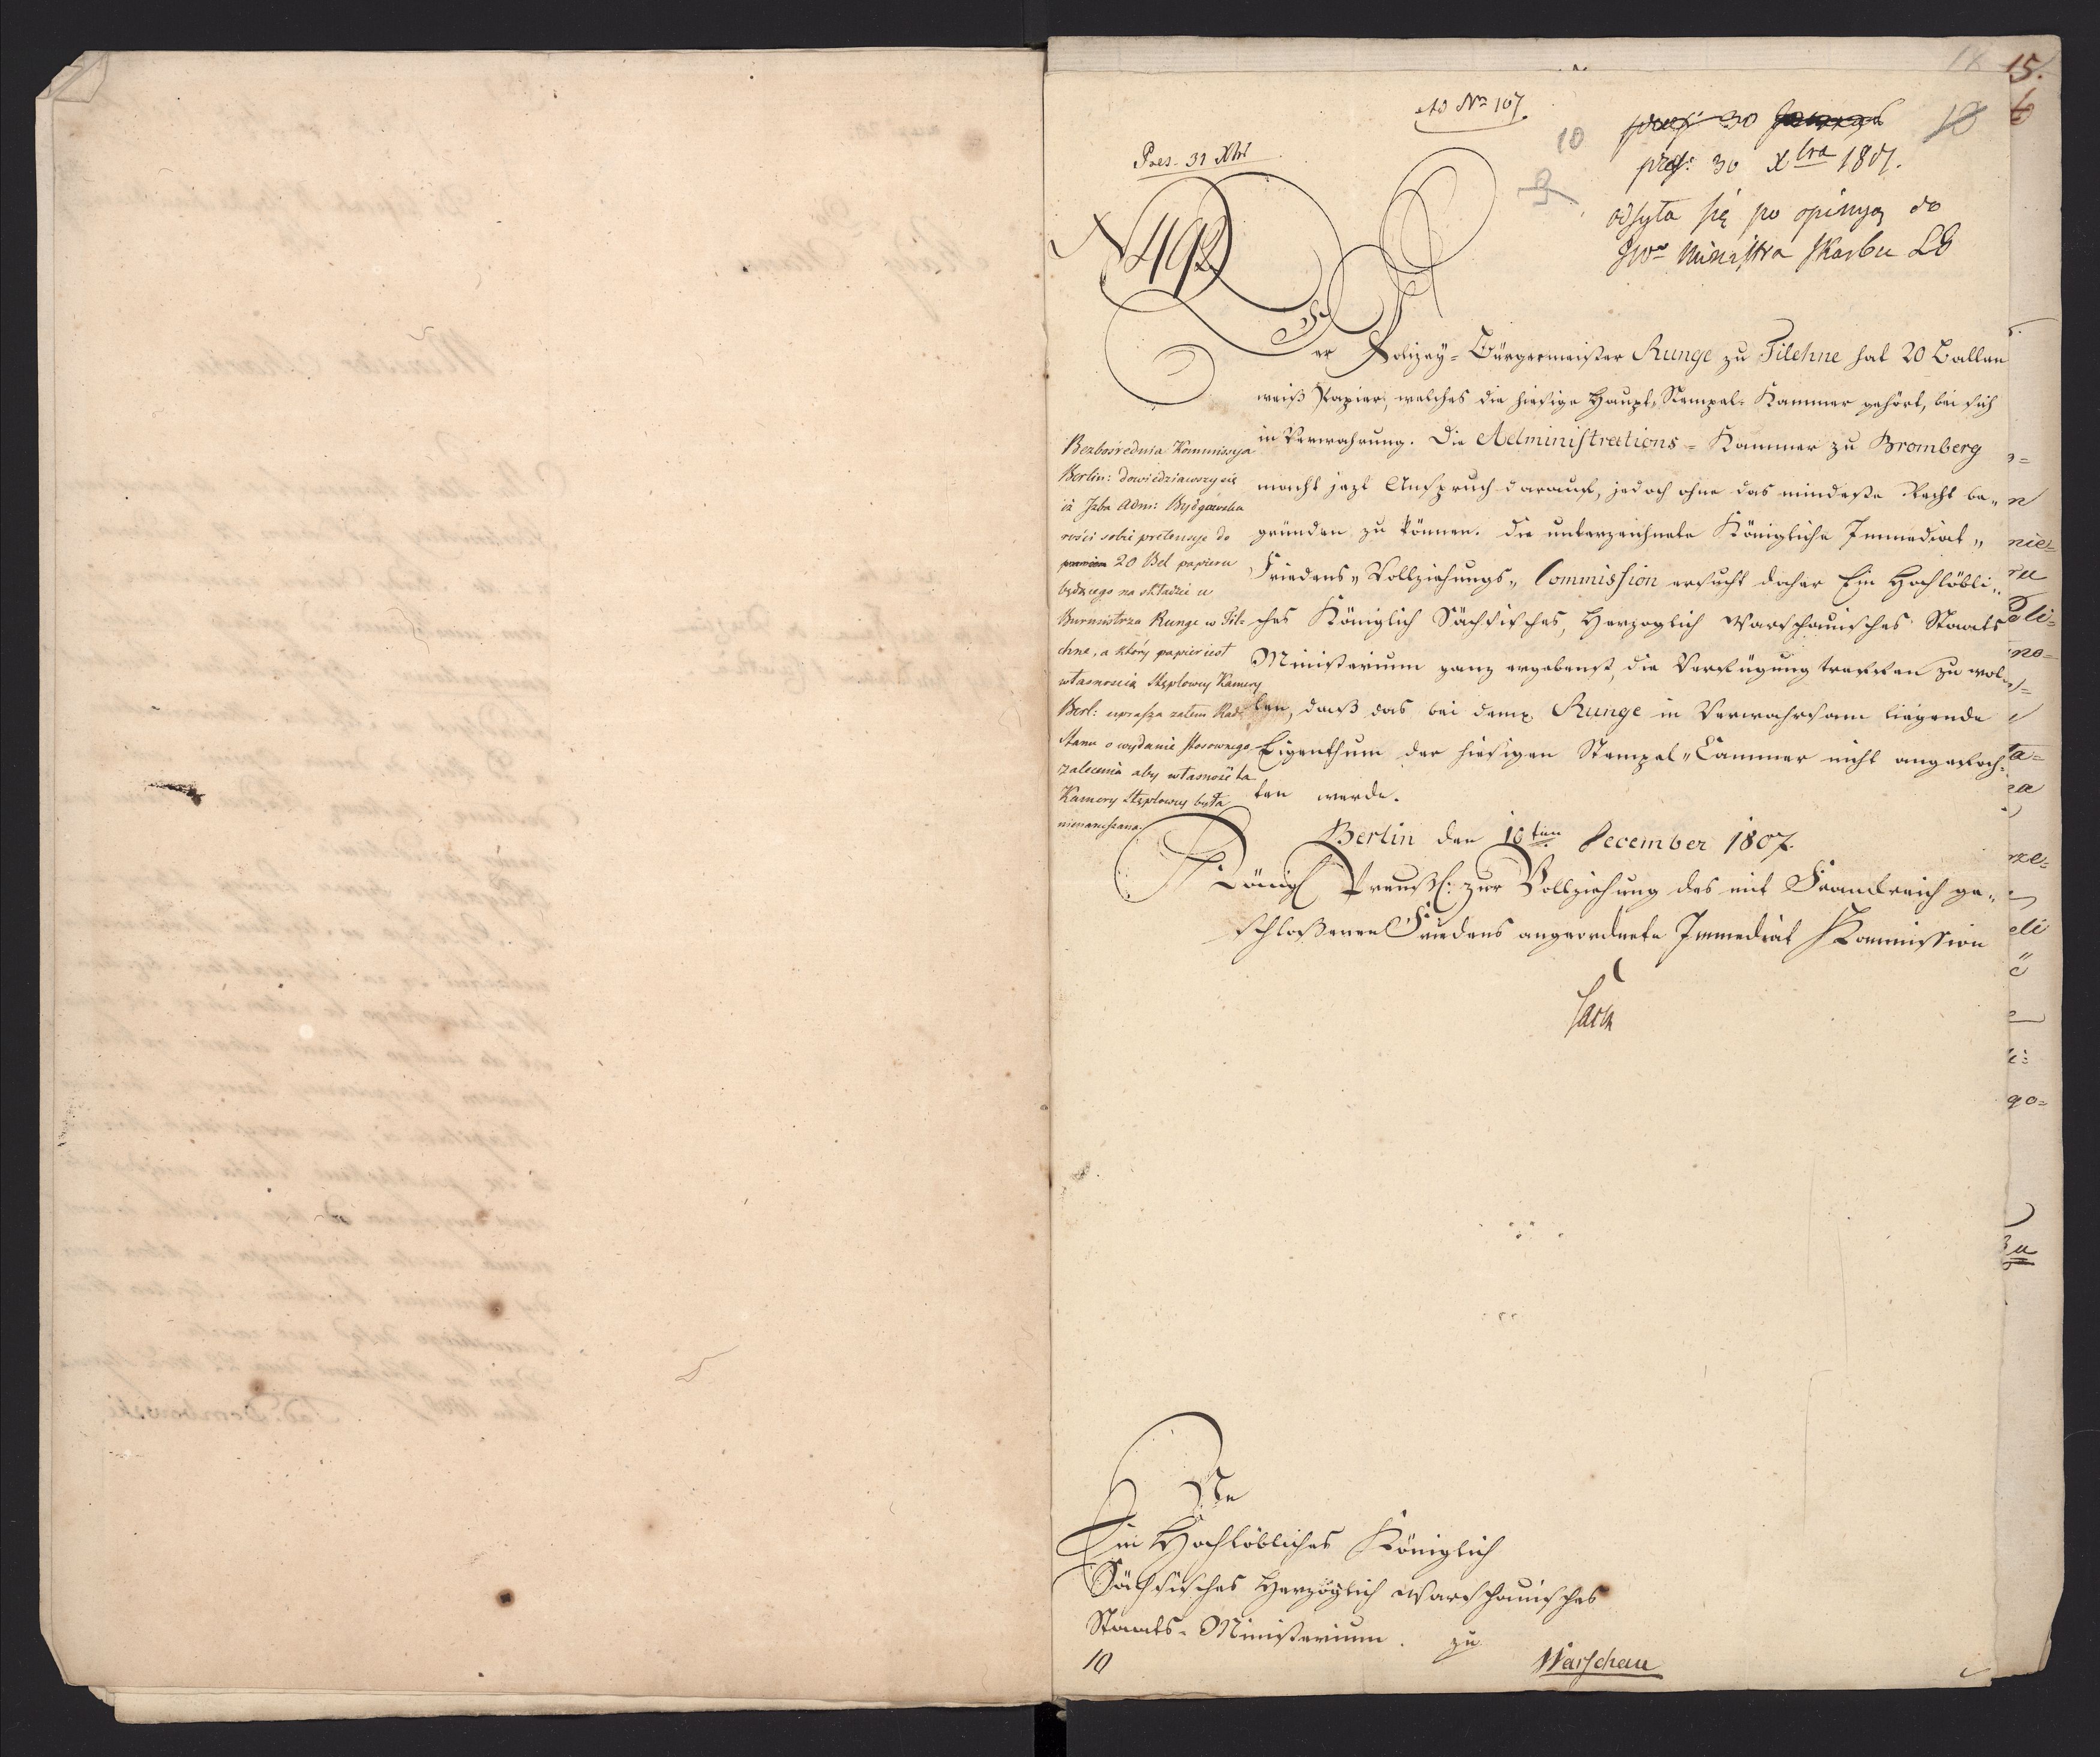 15.
Ad Nro 107.
10
Pres. 31 Xbr
pres: 30
pres: 30 Xbra 1807.
odsyła się po opinyą do
JW Ministra Skarbu LG
N 492
Der Polizey-Bürgermeister Runge zu Filehne hat 20 Ballen
weiß Papier, welches die hiesige Haupt-Stempel-Kammer gehört, bei sich
in Verwahrung. Die Administrations-Kammer zu Bromberg
macht jezt Anspruch darauf, jedoch ohne das mindeste Recht be„
gründen zu können. Die unterzeichnete Königliche Immediat„
Friedens„Vollziehungs„Commission ersucht daher Ein Hochlöbli„
ches Königlich Sächsisches, Herzoglich Warschauisches Staats
Ministerium ganz ergebenst, die Verfügung treffen zu wol„
len, daß das bei dem p. Runge in Verwahrsam liegende
Eigenthum der hiesigen Stempel„Cammer nicht angefoch„
ten werde.
Berlin den 10ten December 1807.
Königl Preußl: zur Vollziehung des mit Frankreich ge„
schloßenen Friedens angeordnete Immediat Kommission
Sack
Bezbośrednia Kommissya
Berlin: dowiedziawszy się
iż Izba Adm: Bydgowska
rości sobie pretensye do
20 Bel papieru
będącego na składzie u
Burmistrza Runge w File-
chne, a który papier iest
własnością Stęplowey Kamery
Berl: uprasza zatem Radę
Stanu o wydanie stosownego
zalecenia aby własność ta
Kamery Stęplowey była
nienaruszana.
An
Ein Hochlöbliches Königlich
Sächsisches Herzoglich Warschauisches
Staats-Ministerium. zu
Warschau
10